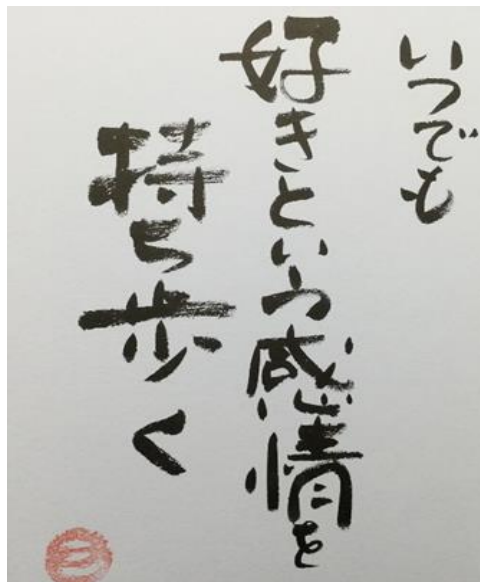 いつでも
好きという感情を
持ち歩く